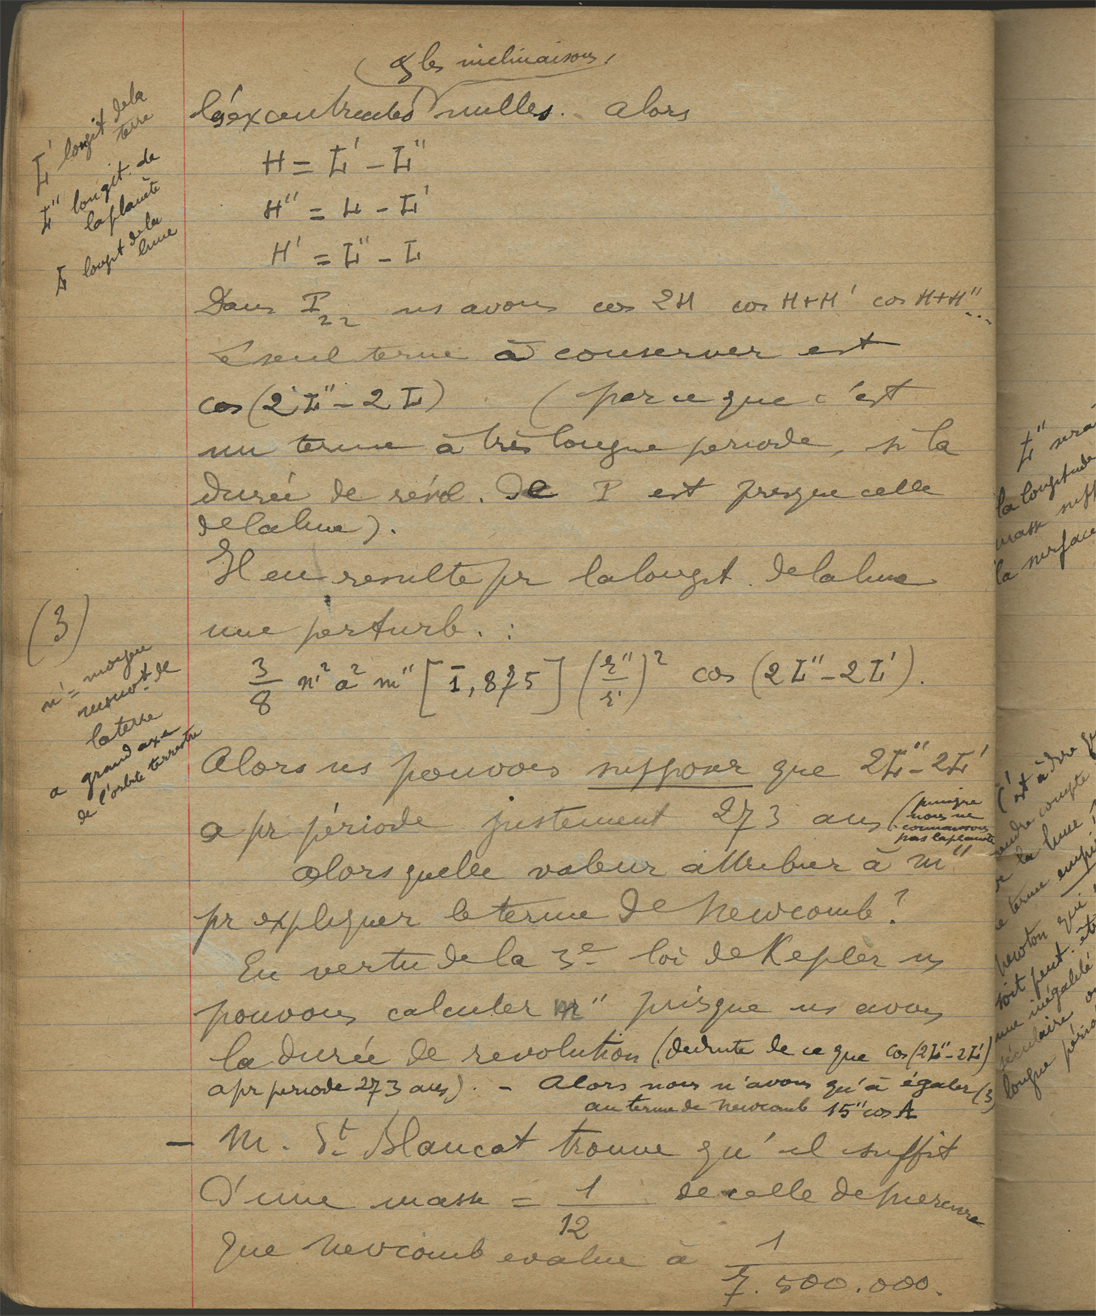 & les inclinaisons,
les excentricités nulles. Alors
H = L' - L"
H" = L - L'
H' = L" - L
L' longit de la
terre
L" longit. de
la planète
L longit de la
lune
Dans P22 ns avons cos 2H cos H+H' cos H+H"...
Le seul terme à conserver est
cos (2L" - 2L) (parce que c'est
un terme à très longue période, si la
durée de révol. de P est presque celle
de la lune).
Il en resulte pr la longit. de la lune
une perturb. :
(3)
3/8 n'² a² m" [1,875] (r"/r')² cos (2L" - 2L').
n' = moyen
mouvt de
la terre
a grand axe
de l'orbite terrestre
Alors ns pouvons supposer que 2L" - 2L'
a pr période justement 273 ans (puisque
nous ne
connaissons
pas la planète
alors quelle valeur attribuer à m"
pr expliquer le terme de Newcomb ?
En vertu de la 3e loi de Kepler ns
pouvons calculer " puisque ns avons
la durée de revolution (déduite de ce que cos (2L" - 2L')
a pr periode 273 ans). - Alors nous n'avons qu'à égaler (3)
au terme de Newcomb 15" cos A
- M. St Blancat trouve qu'il suffit
d'une masse = 1/12 de celle de Mercure
que Newcomb evalue à 1/7.500.000.
L" sera
la longitude
masse
la surface
C'est à dire
compte
de la lune
terme
qui
soit peut-être
une inégalité
séculaire ou
longue période